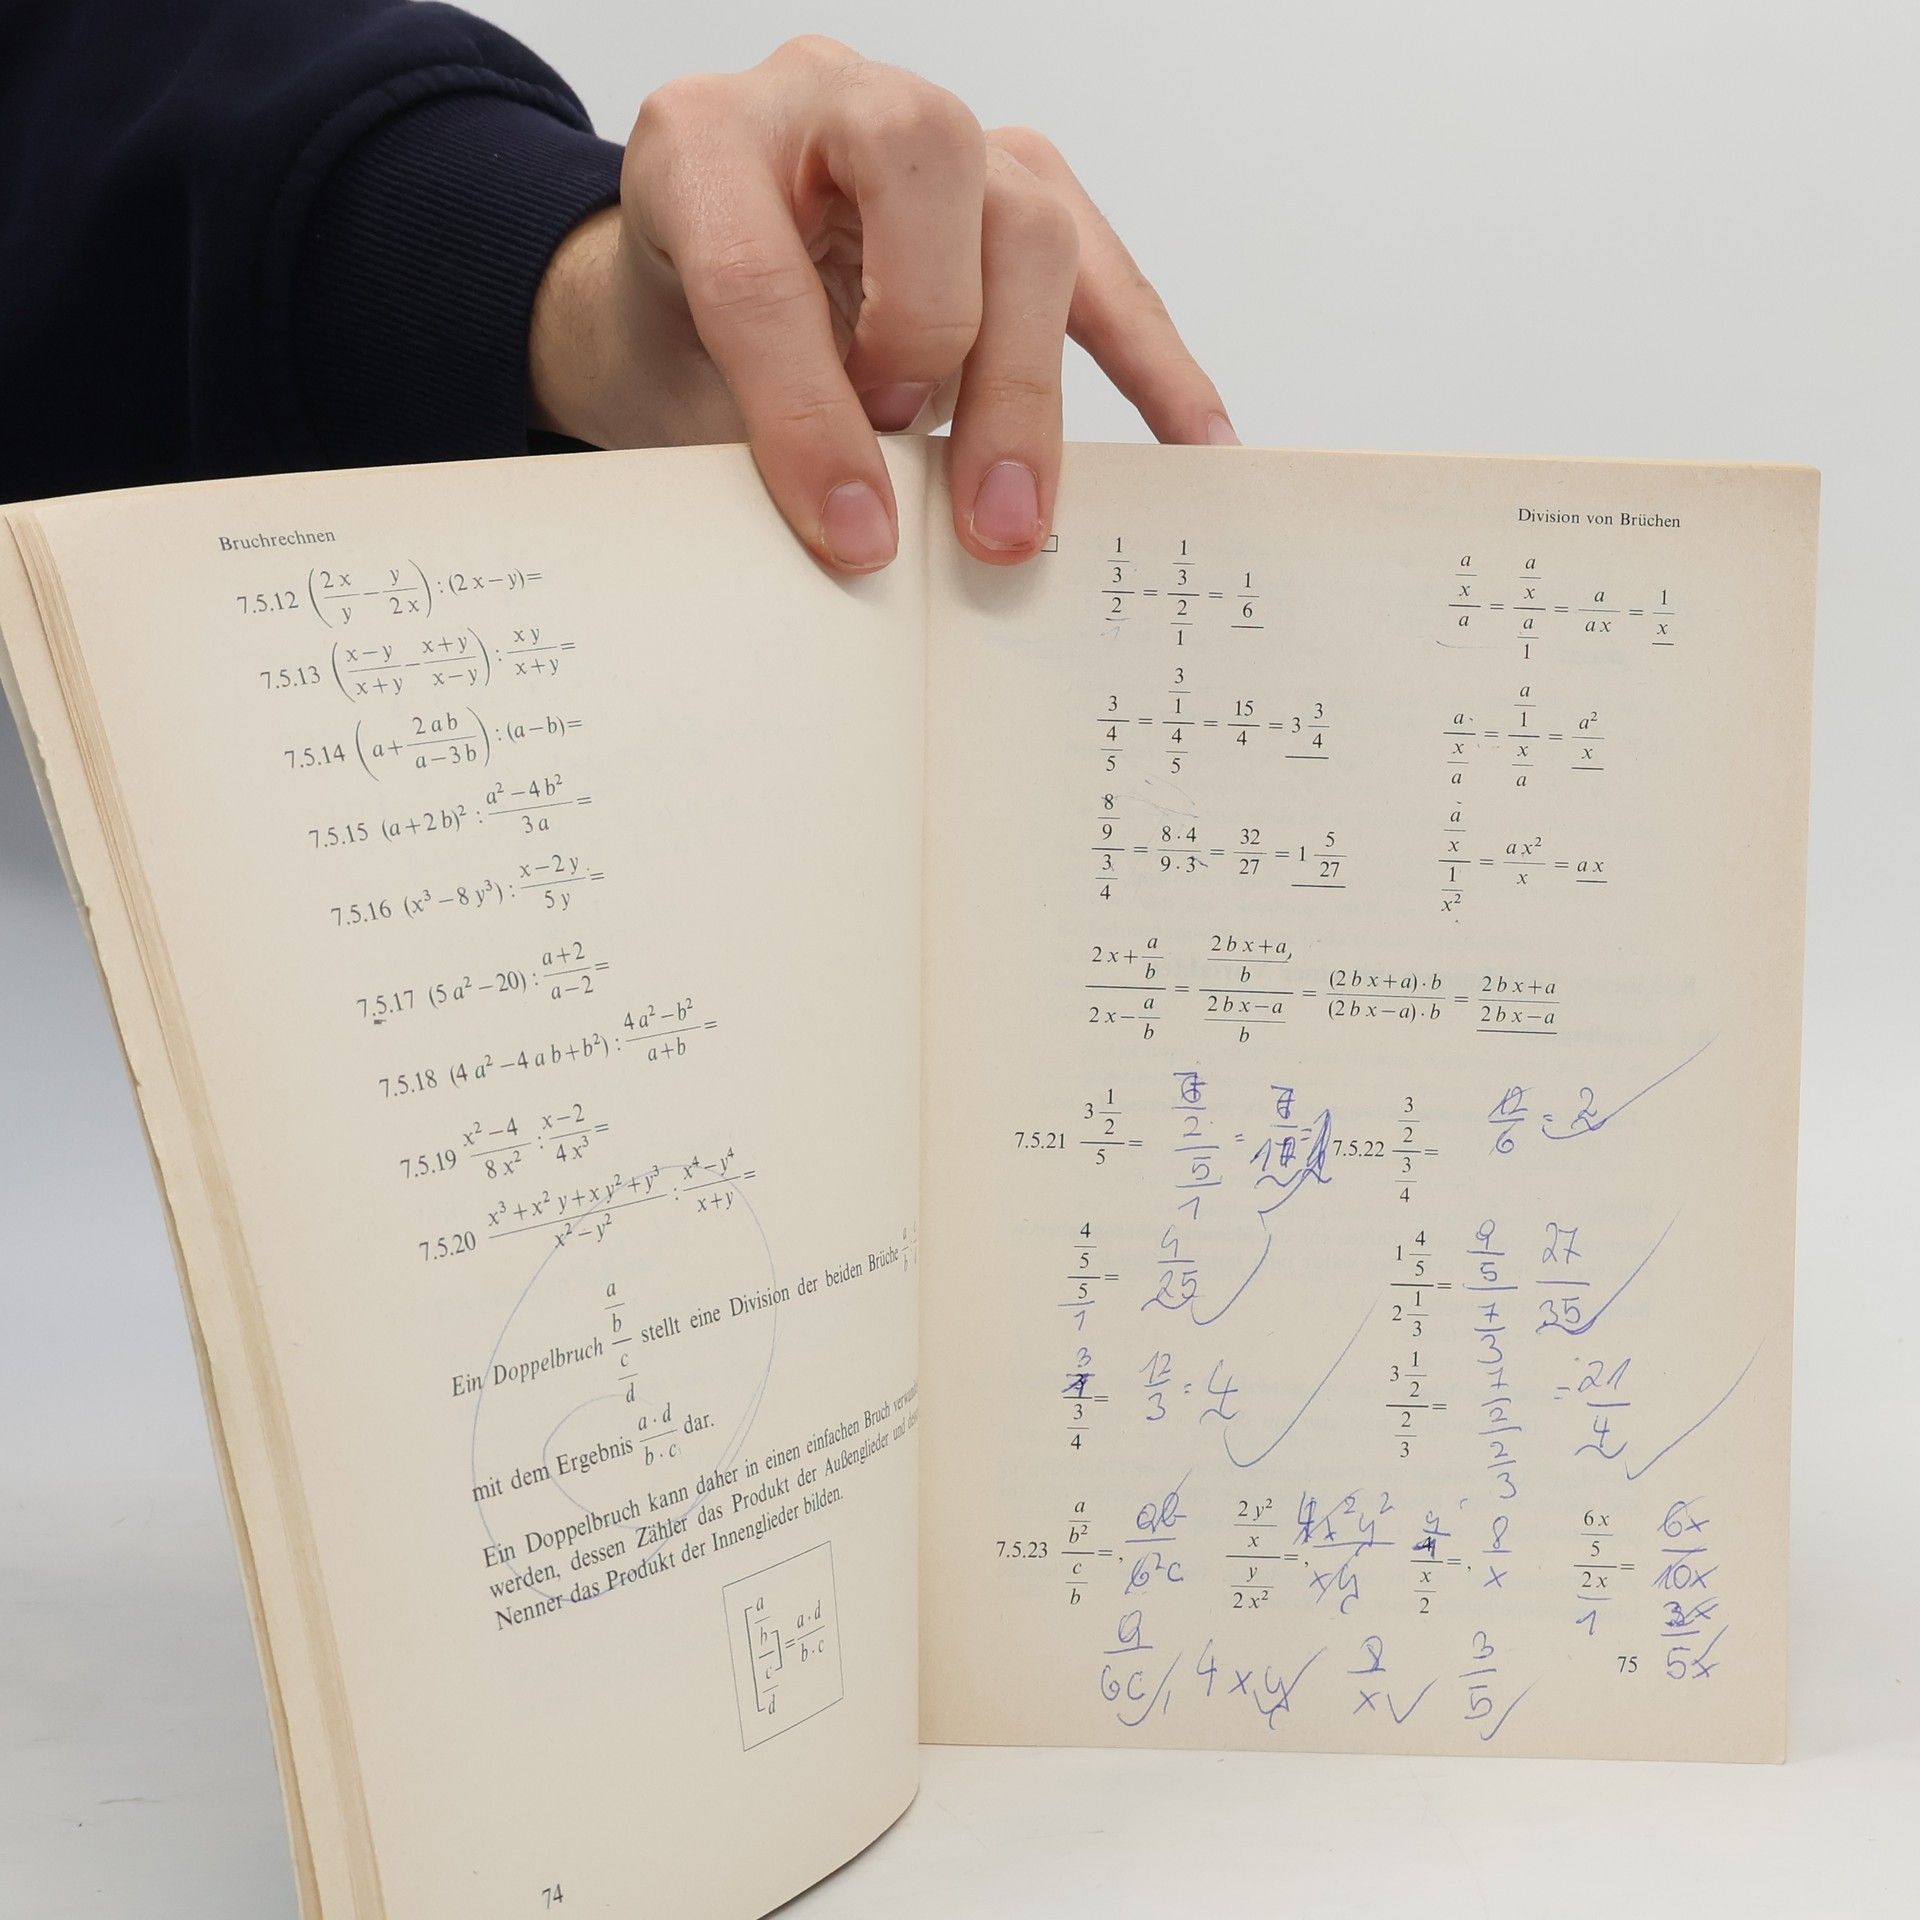 Bruchrechnen
7.5.12 (2x/y − y/2x) : (2x−y)=
7.5.13 (x−y/x+y − x+y/x−y) : xy/x+y =
7.5.14 (a + 2ab/a−3b) : (a−b)=
7.5.15 (a+2b)² : a²−4b²/3a =
7.5.16 (x³−8y³) : x−2y/5y =
7.5.17 (5a²−20) : a+2/a−2 =
7.5.18 (4a²−4ab+b²) : 4a²−b²/a+b =
7.5.19 x²−4/8x² : x−2/4x³ =
7.5.20 x³+x²y+xy²+y³/x²−y² : x⁴−y⁴/x+y =
Ein Doppelbruch a/b/c/d stellt eine Division der beiden Brüche
mit dem Ergebnis a·d/b·c dar.
Ein Doppelbruch kann daher in einen einfachen Bruch
werden, dessen Zähler das Produkt der Außenglieder und
Nenner das Produkt der Innenglieder bilden.
[a/b/c/d] = a·d/b·c
74
Division von Brüchen
1/3/2 = 1/3/2/1 = 1/6
a/x/a = a/x/a/1 = a/ax = 1/x
3/4/5 = 3/1/4/5 = 15/4 = 3 3/4
a/x/a = a/1/x/a = a²/x
8/9/3/4 = 8·4/9·3 = 32/27 = 1 5/27
a/x/1/x² = ax²/x = ax
2x+a/b/2x−a/b = 2bx+a/b/2bx−a/b = (2bx+a)·b/(2bx−a)·b = 2bx+a/2bx−a
7.5.21 3 1/2/5 =
7.5.22 3/2/3/4 = 12/6 = 2
4/5/5/1 = 4/25
1 4/5/2 1/3 = 9/5/7/3 27/35
3/3/4 = 12/3 = 4
3 1/2/2/3 = 7/2/2/3 = 21/4
7.5.23 a/b²/c/b =, ab/b²c
2y²/x/y/2x² =, 4x²y²/xy
4/x/2 =, 8/x
6x/5/2x/1 = 6x/10x
3x/5x
a/bc, 4xy 8/x 3/5
75